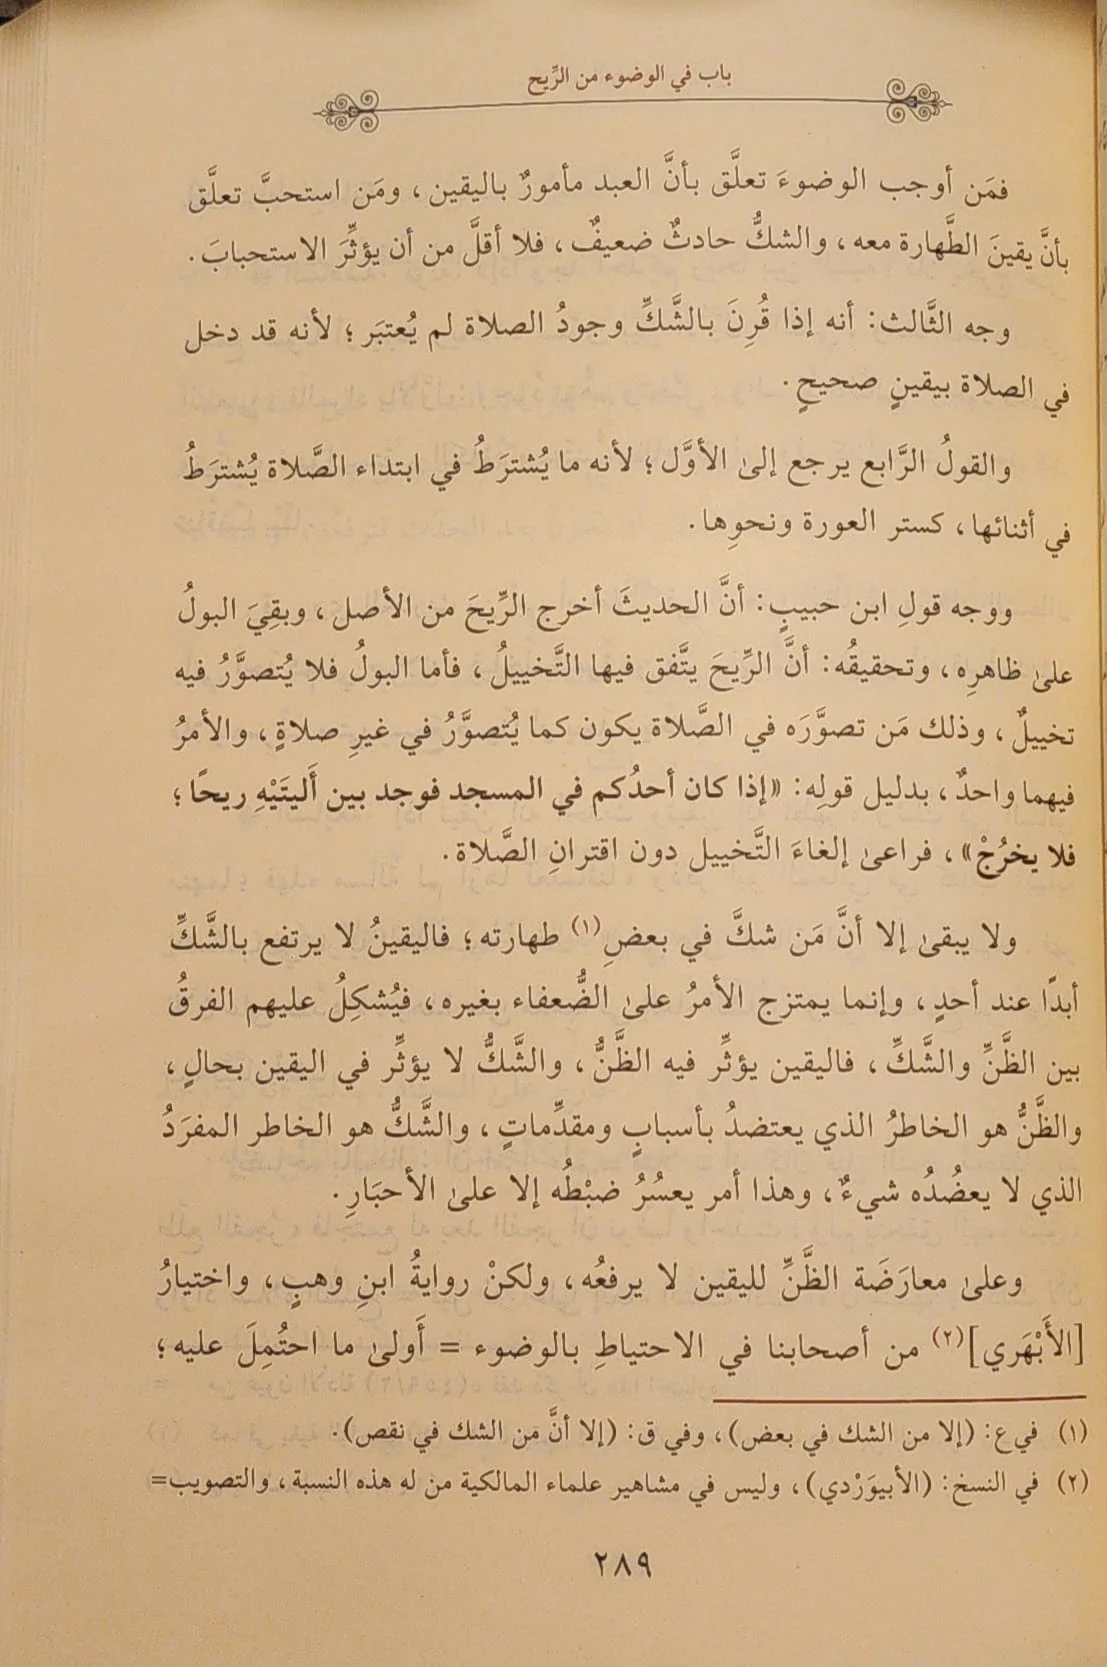 باب في الوضوء من الرِّيح
فمَن أوجب الوضوءَ تعلَّق بأنَّ العبد مأمورٌ باليقين، ومَن استحبَّ تعلَّق
بأنَّ يقينَ الطَّهارة معه، والشكُّ حادثٌ ضعيفٌ، فلا أقلَّ من أن يؤثِّرَ الاستحبابَ.
وجه الثَّالث: أنه إذا قُرِنَ بالشَّكِّ وجودُ الصلاة لم يُعتبَر؛ لأنه قد دخل
في الصلاة بيقينٍ صحيحٍ.
والقولُ الرَّابع يرجع إلىٰ الأوَّل؛ لأنه ما يُشترَطُ في ابتداء الصَّلاة يُشترَطُ
في أثنائها، كستر العورة ونحوِها.
ووجه قولِ ابن حبيبٍ: أنَّ الحديثَ أخرج الرِّيحَ من الأصل، وبقِيَ البولُ
علىٰ ظاهرِه، وتحقيقُه: أنَّ الرِّيحَ يتَّفق فيها التَّخييلُ، فأما البولُ فلا يُتصوَّرُ فيه
تخييلٌ، وذلك مَن تصوَّرَه في الصَّلاة يكون كما يُتصوَّرُ في غيرِ صلاةٍ، والأمرُ
فيهما واحدٌ، بدليل قولِه: «إذا كان أحدُكم في المسجد فوجد بين أَليتَيْهِ ريحًا؛
فلا يخرُجْ»، فراعىٰ إلغاءَ التَّخييل دون اقترانِ الصَّلاة.
ولا يبقىٰ إلا أنَّ مَن شكَّ في بعضِ(١) طهارته؛ فاليقينُ لا يرتفع بالشَّكِّ
أبدًا عند أحدٍ، وإنما يمتزج الأمرُ علىٰ الضُّعفاء بغيره، فيُشكِلُ عليهم الفرقُ
بين الظَّنِّ والشَّكِّ، فاليقين يؤثِّر فيه الظَّنُّ، والشَّكُّ لا يؤثِّر في اليقين بحالٍ،
والظَّنُّ هو الخاطرُ الذي يعتضدُ بأسبابٍ ومقدِّماتٍ، والشَّكُّ هو الخاطر المفرَدُ
الذي لا يعضُدُه شيءٌ، وهذا أمر يعسُرُ ضبْطُه إلا علىٰ الأحبَارِ.
وعلىٰ معارَضَة الظَّنِّ لليقين لا يرفعُه، ولكنْ روايةُ ابنِ وهبٍ، واختيارُ
[الأَبْهَري](٢) من أصحابنا في الاحتياطِ بالوضوء = أَولىٰ ما احتُمِلَ عليه؛
(١) في ع: (إلا من الشك في بعض)، وفي ق: (إلا أنَّ من الشك في نقص).
(٢) في النسخ: (الأبيوَرْدي)، وليس في مشاهير علماء المالكية من له هذه النسبة، والتصويب=
٢٨٩